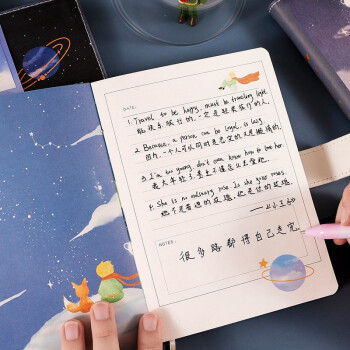 DATE:
1. Travel to be happy, must be traveling light
能快乐旅行的,一定是轻装旅行的人。
2. Because, a person can be loyal, is lucky
因为,一个人可以同的是
3. I'm too young, don't even know how to love her.
我太年轻了,甚至不懂怎么去爱她。
4. She is no ordinary rose. She is your rose.
她不是普通的玫瑰,她是你的玫瑰。
——《小王子》
NOTES:
很多路 都得自己走完